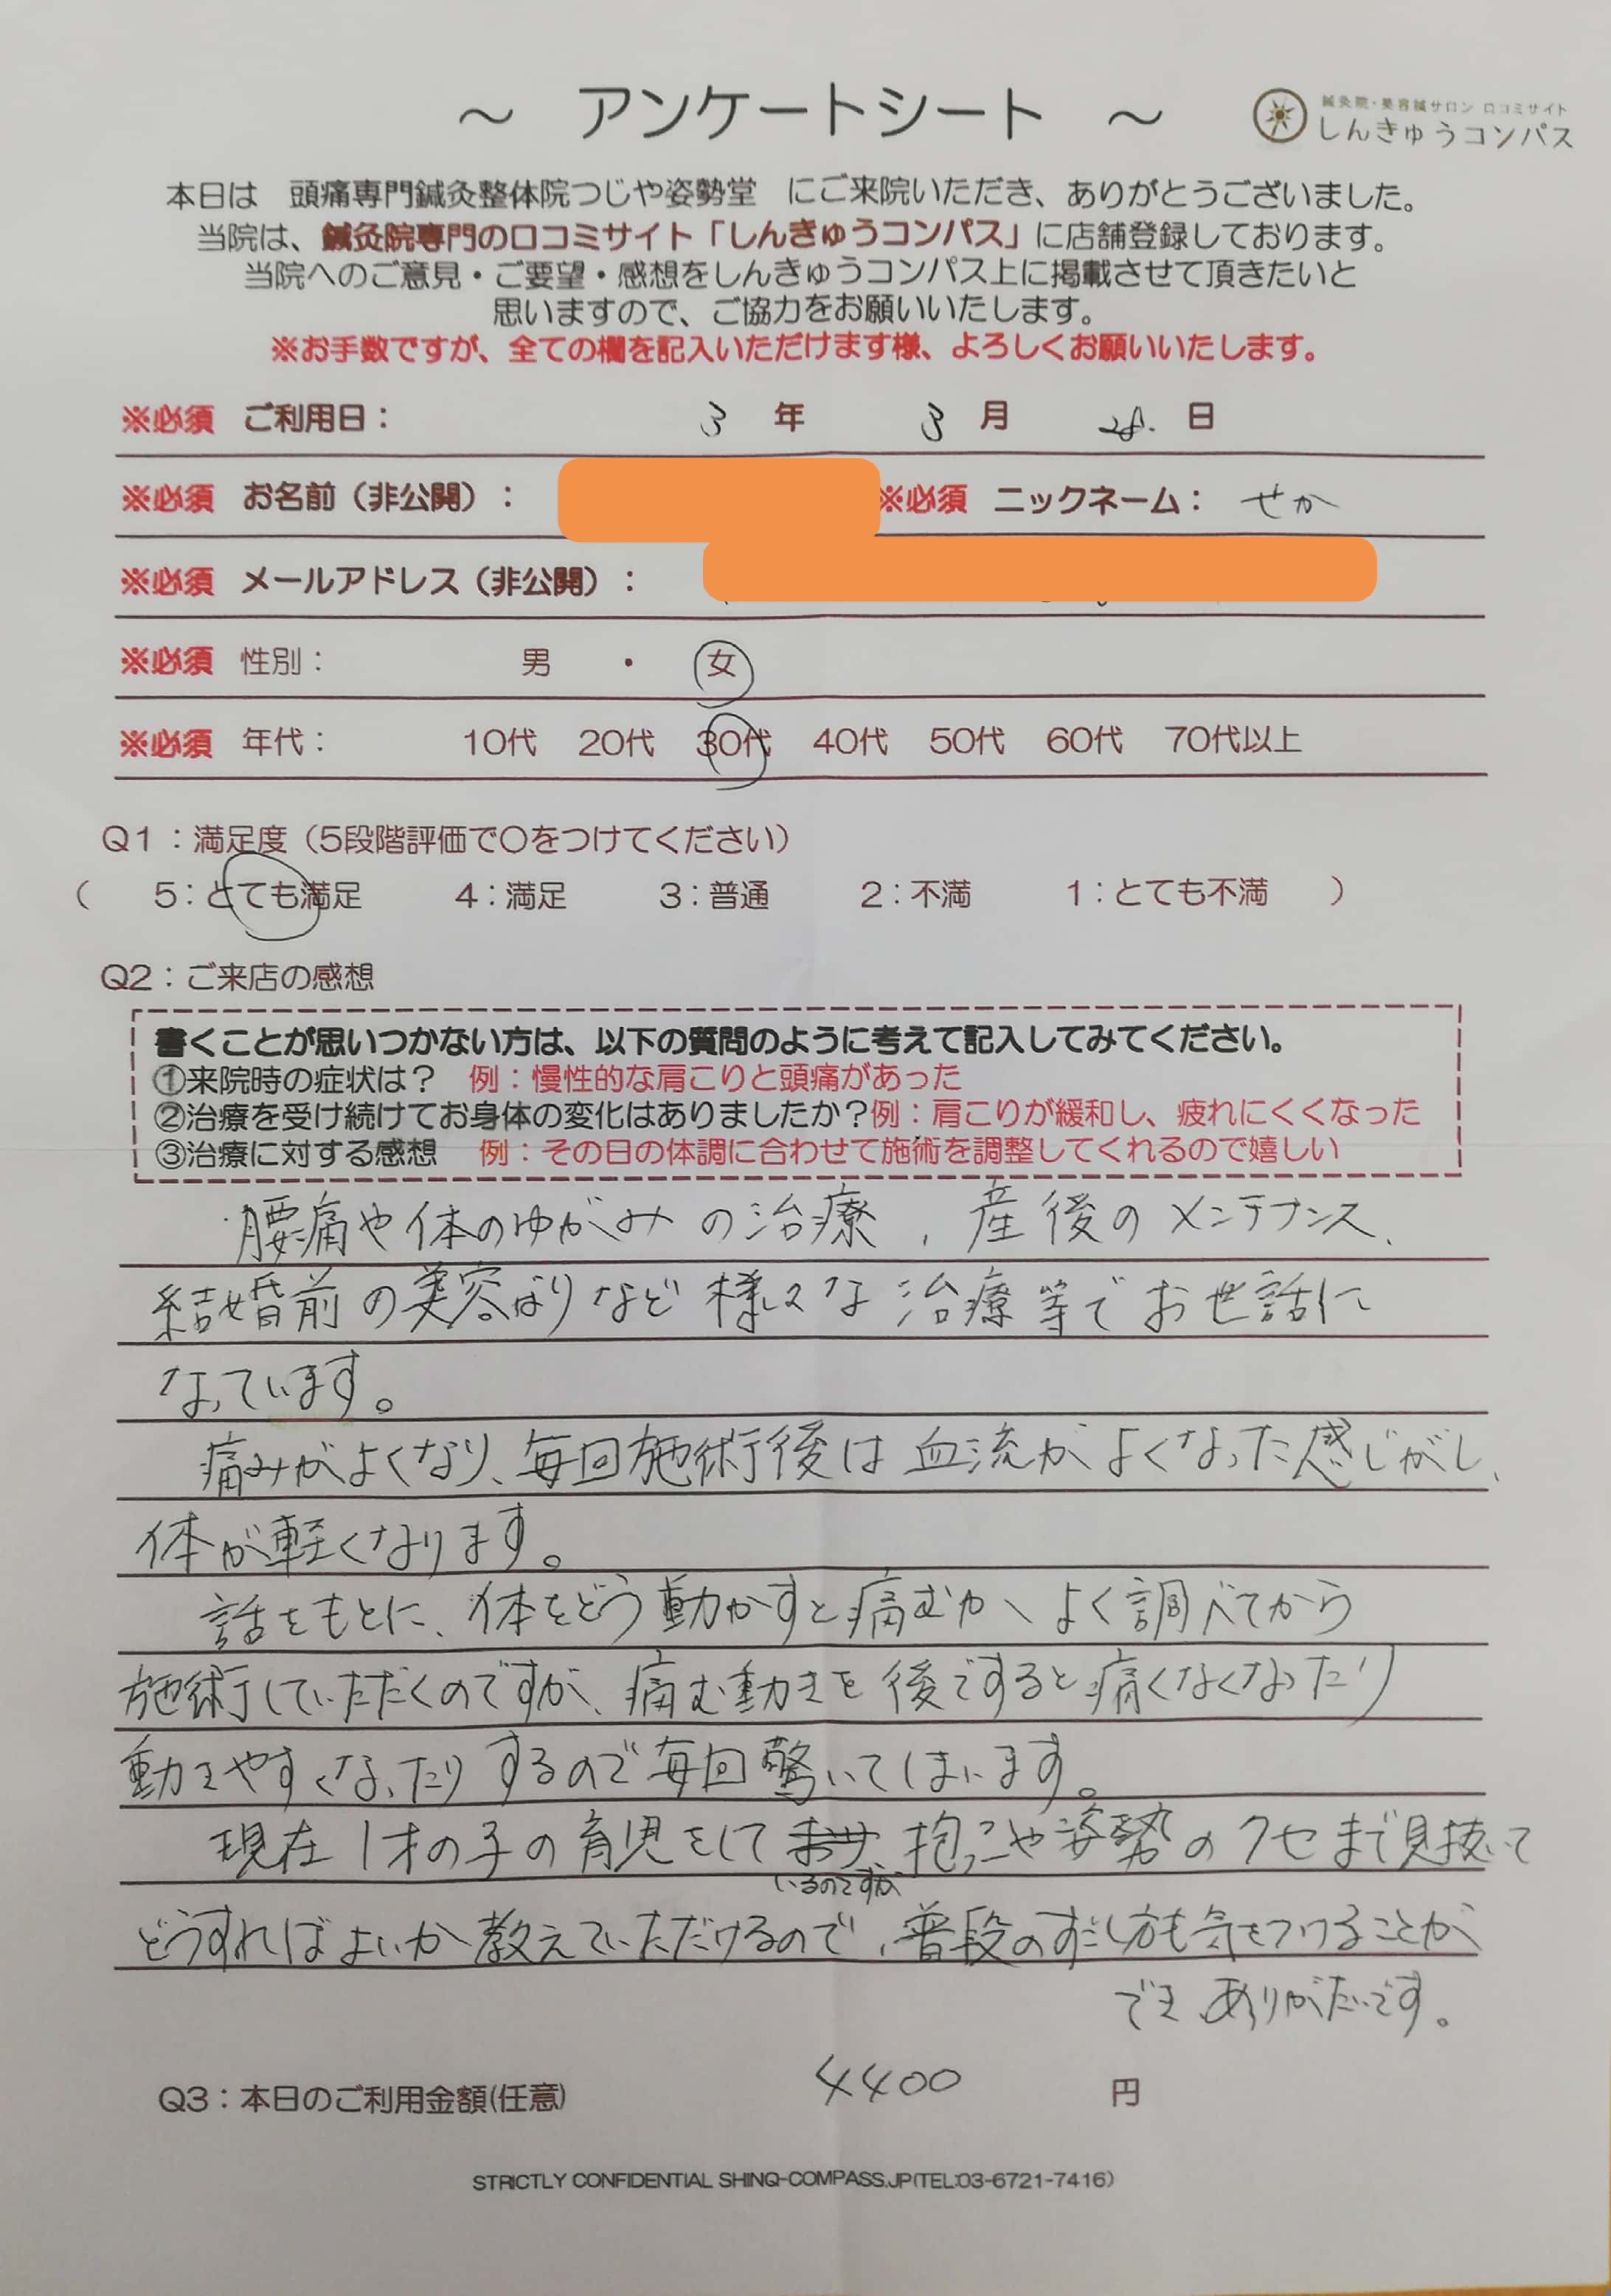 ～ アンケートシート ～
鍼灸院・美容鍼サロン 口コミサイト
しんきゅうコンパス
本日は 頭痛専門鍼灸整体院つじや姿勢堂 にご来院いただき、ありがとうございました。
当院は、鍼灸院専門の口コミサイト「しんきゅうコンパス」に店舗登録しております。
当院へのご意見・ご要望・感想をしんきゅうコンパス上に掲載させて頂きたいと
思いますので、ご協力をお願いいたします。
※お手数ですが、全ての欄を記入いただけます様、よろしくお願いいたします。
※必須 ご利用日： 3 年 3 月 28. 日
※必須 お名前（非公開）： ※必須 ニックネーム： せか
※必須 メールアドレス（非公開）：
※必須 性別： 男 ・ 女
※必須 年代： 10代 20代 30代 40代 50代 60代 70代以上
Q1：満足度（5段階評価で〇をつけてください）
（ 5：とても満足 4：満足 3：普通 2：不満 1：とても不満 ）
Q2：ご来店の感想
書くことが思いつかない方は、以下の質問のように考えて記入してみてください。
①来院時の症状は？ 例：慢性的な肩こりと頭痛があった
②治療を受け続けてお身体の変化はありましたか？例：肩こりが緩和し、疲れにくくなった
③治療に対する感想 例：その日の体調に合わせて施術を調整してくれるので嬉しい
腰痛や体のゆがみの治療、産後のメンテナンス、
結婚前の美容はりなど様々な治療等でお世話に
なっています。
痛みがよくなり、毎回施術後は血流がよくなった感じがし、
体が軽くなります。
話をもとに、体をどう動かすと痛むか、よく調べてから
施術していただくのですが、痛む動きを後ですると痛くなくなったり
動きやすくなったりするので毎回驚いてしまいます。
現在1才の子の育児をして 抱っこや姿勢のクセまで見抜いて
いるのですが
どうすればよいか教えていただけるので、普段のすごし方も気をつけることが
でき、ありがたいです。
Q3：本日のご利用金額(任意) 4400 円
STRICTLY CONFIDENTIAL SHINQ-COMPASS.JP(TEL:03-6721-7416)